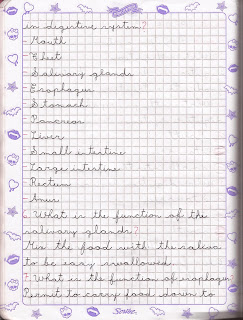 in digestive system?
- Mouth
- Cheet
- Salivary glands
- Esophagus
- Stomach
- Pancreas
- Liver
- Small intestine
- Large intestine
- Rectum
- Anus
6. What is the function of the
salivary glands?
Mix the food with the saliva
to be easy swallowed.
7. What is the function of esophagus?
Permit to carry food down to
Scribe